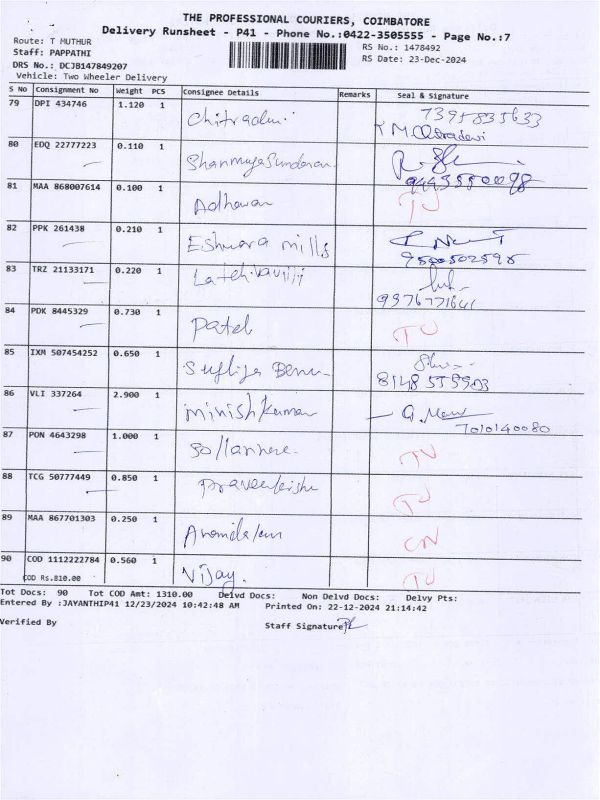 THE PROFESSIONAL COURIERS, COIMBATORE
Delivery Runsheet - P41 - Phone No.:0422-3505555 - Page No.:7
Route: T MUTHUR
Staff: PAPPATHI
DRS No.: DCJB147849207
Vehicle: Two Wheeler Delivery
RS No.: 1478492
RS Date: 23-Dec-2024
S No Consignment No Weight PCS Consignee Details Remarks Seal & Signature
79 DPI 434746 1.120 1 Chitradevi 7395835633
80 EDQ 22777223 0.110 1 Shanmugasundaran 9443550098
81 MAA 868007614 0.100 1 Adhavan
82 PPK 261438 0.210 1 Eshwara mills 9500502595
83 TRZ 21133171 0.220 1 9976771641
84 PDK 8445329 0.730 1 Patel
85 IXM 507454252 0.650 1 8148559903
86 VLI 337264 2.900 1 minishkumar 7010140080
87 PON 4643298 1.000 1
88 TCG 50777449 0.850 1
89 MAA 867701303 0.250 1
90 COD 1112222784 0.560 1 Vijay.
COD Rs.810.00
Tot Docs: 90 Tot COD Amt: 1310.00 Delvd Docs: Non Delvd Docs: Delvy Pts:
Entered By :JAYANTHIP41 12/23/2024 10:42:48 AM Printed On: 22-12-2024 21:14:42
Verified By
Staff Signature